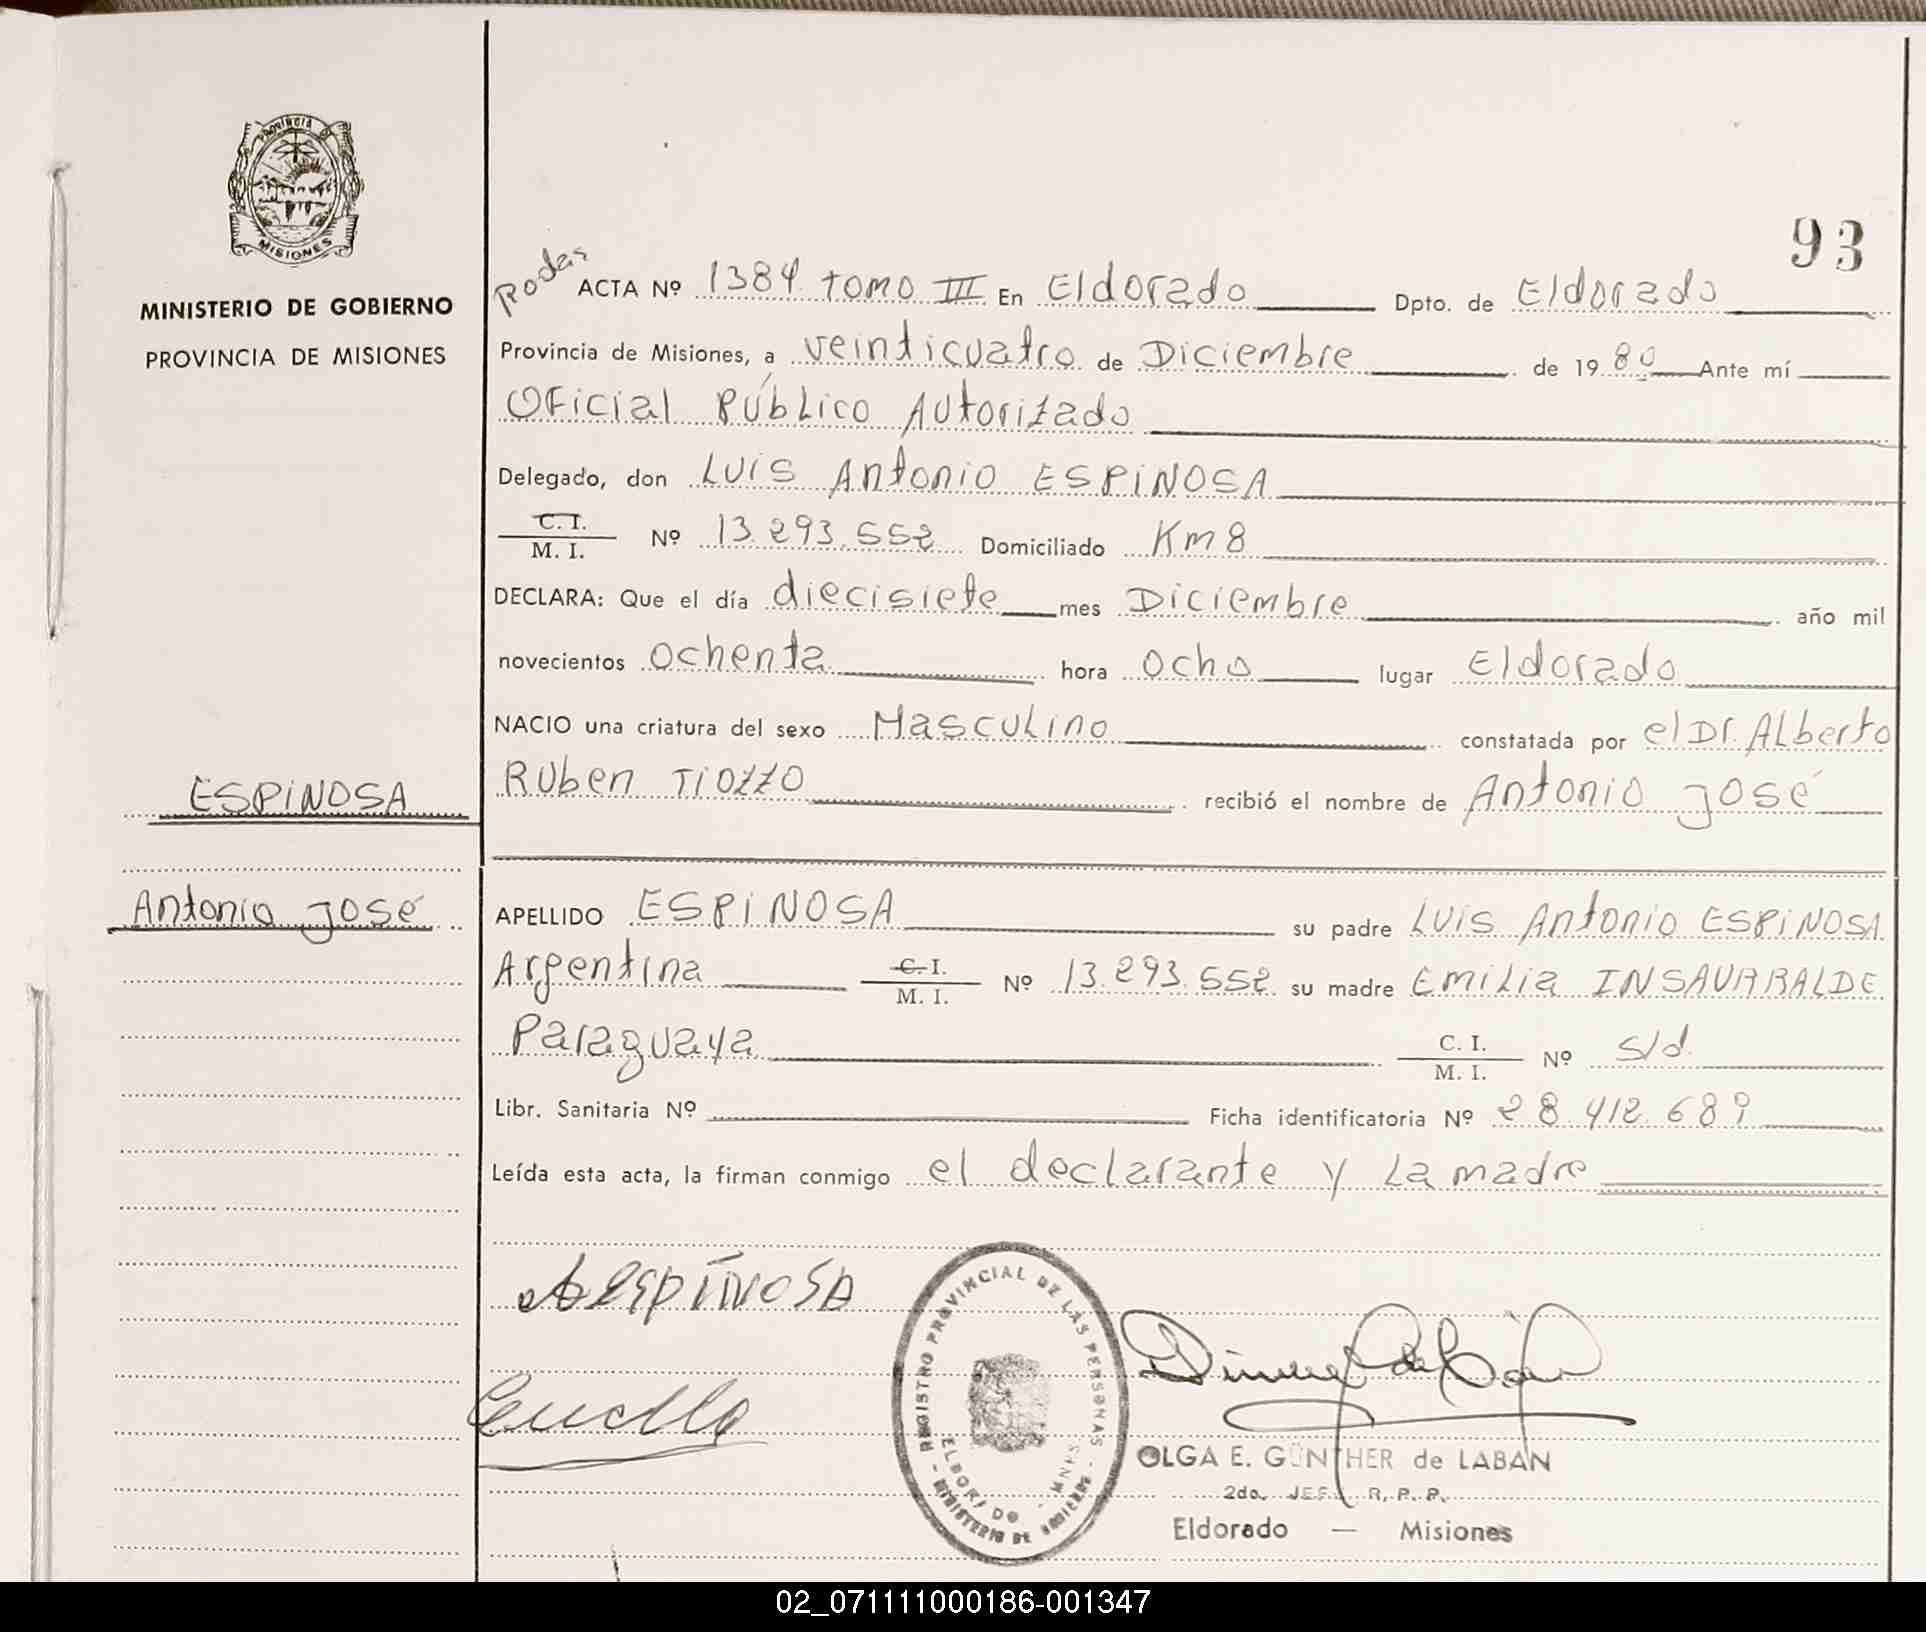 PROVINCIA DE
MISIONES
MINISTERIO DE GOBIERNO
PROVINCIA DE MISIONES
93
Rodas
ACTA Nº 1384 tomo III En Eldorado Dpto. de Eldorado
Provincia de Misiones, a veinticuatro de Diciembre de 1980 Ante mí
Oficial Público Autorizado
Delegado, don Luis Antonio ESPINOSA
C. I.
M. I. Nº 13.293.552 Domiciliado Km 8
DECLARA: Que el día diecisiete mes Diciembre año mil
novecientos ochenta hora ocho lugar Eldorado
NACIO una criatura del sexo Masculino constatada por el Dr. Alberto
Ruben Tiozzo recibió el nombre de Antonio José
ESPINOSA
Antonio José
APELLIDO ESPINOSA su padre Luis Antonio ESPINOSA
Argentina C. I.
M. I. Nº 13.293.552 su madre Emilia INSAURRALDE
Paraguaya C. I.
M. I. Nº s/d.
Libr. Sanitaria Nº Ficha identificatoria Nº 28.412.689
Leída esta acta, la firman conmigo el declarante y la madre
ESPINOSA
REGISTRO PROVINCIAL DE LAS PERSONAS
MINISTERIO DE GOBIERNO
ELDORADO - MNES.
OLGA E. GÜNTHER de LABAN
2do. JEFE R. P. P.
Eldorado — Misiones
02_071111000186-001347